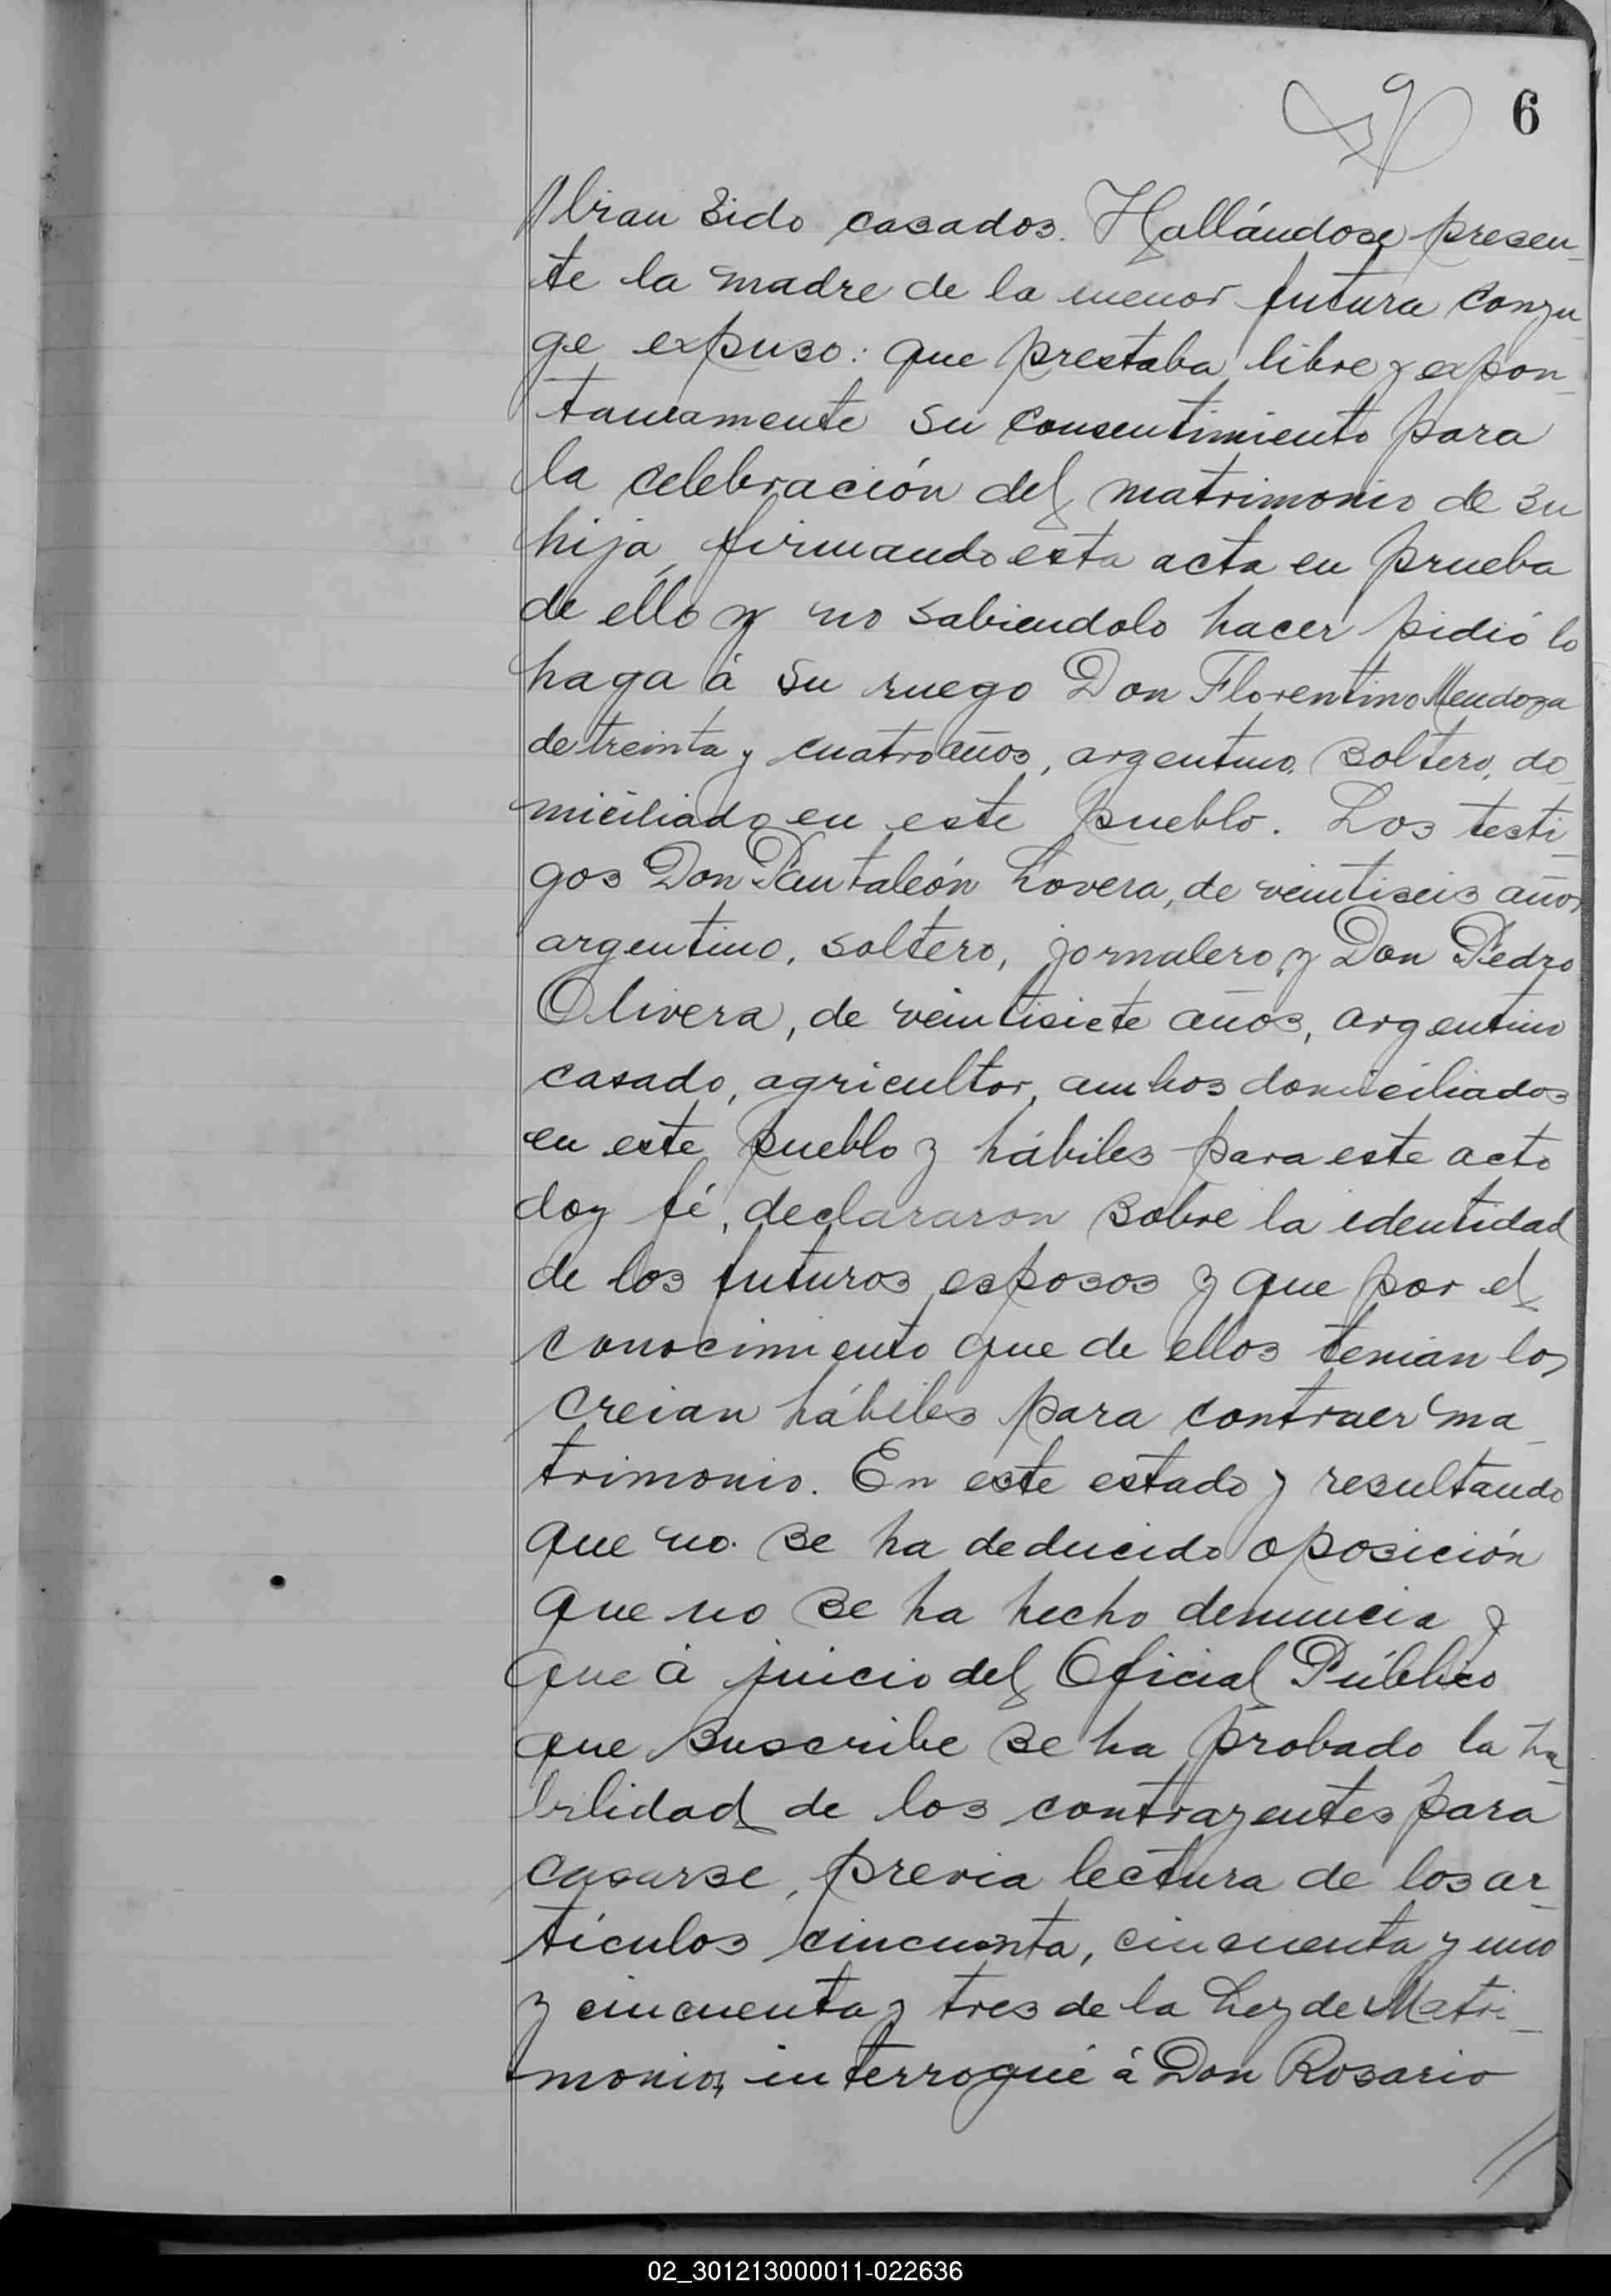 6
//brian sido casados. Hallándose presen_
te la madre de la menor futura conyu_
ge expuso: que prestaba libre y expon_
taneamente su consentimiento para
la celebración del matrimonio de su
hija, firmando esta acta en prueba
de ello y no sabiendolo hacer pidió lo
haga á su ruego Don Florentino Mendoza
de treinta y cuatro años, argentino, soltero, do_
miciliado en este pueblo. Los testi_
gos Don Pantaleón Lovera, de veintiseis años
argentino, soltero, jornalero y Don Pedro
Olivera, de veintisiete años, argentino
casado, agricultor, ambos domiciliados
en este pueblo y hábiles para este acto
doy fé, declararon sobre la identidad
de los futuros esposos y que por el
conocimiento que de ellos tenian los
creian hábiles para contraer ma_
trimonio. En este estado y resultando
que no se ha deducido oposición
que no se ha hecho denuncia y
que á juicio del Oficial Público
que suscribe se ha probado la ha_
bilidad de los contrayentes para
casarse, previa lectura de los ar_
tículos cincuenta, cincuenta y uno
y cincuenta y tres de la Ley de Matri_
monio, interrogué á Don Rosario
//
02_301213000011-022636